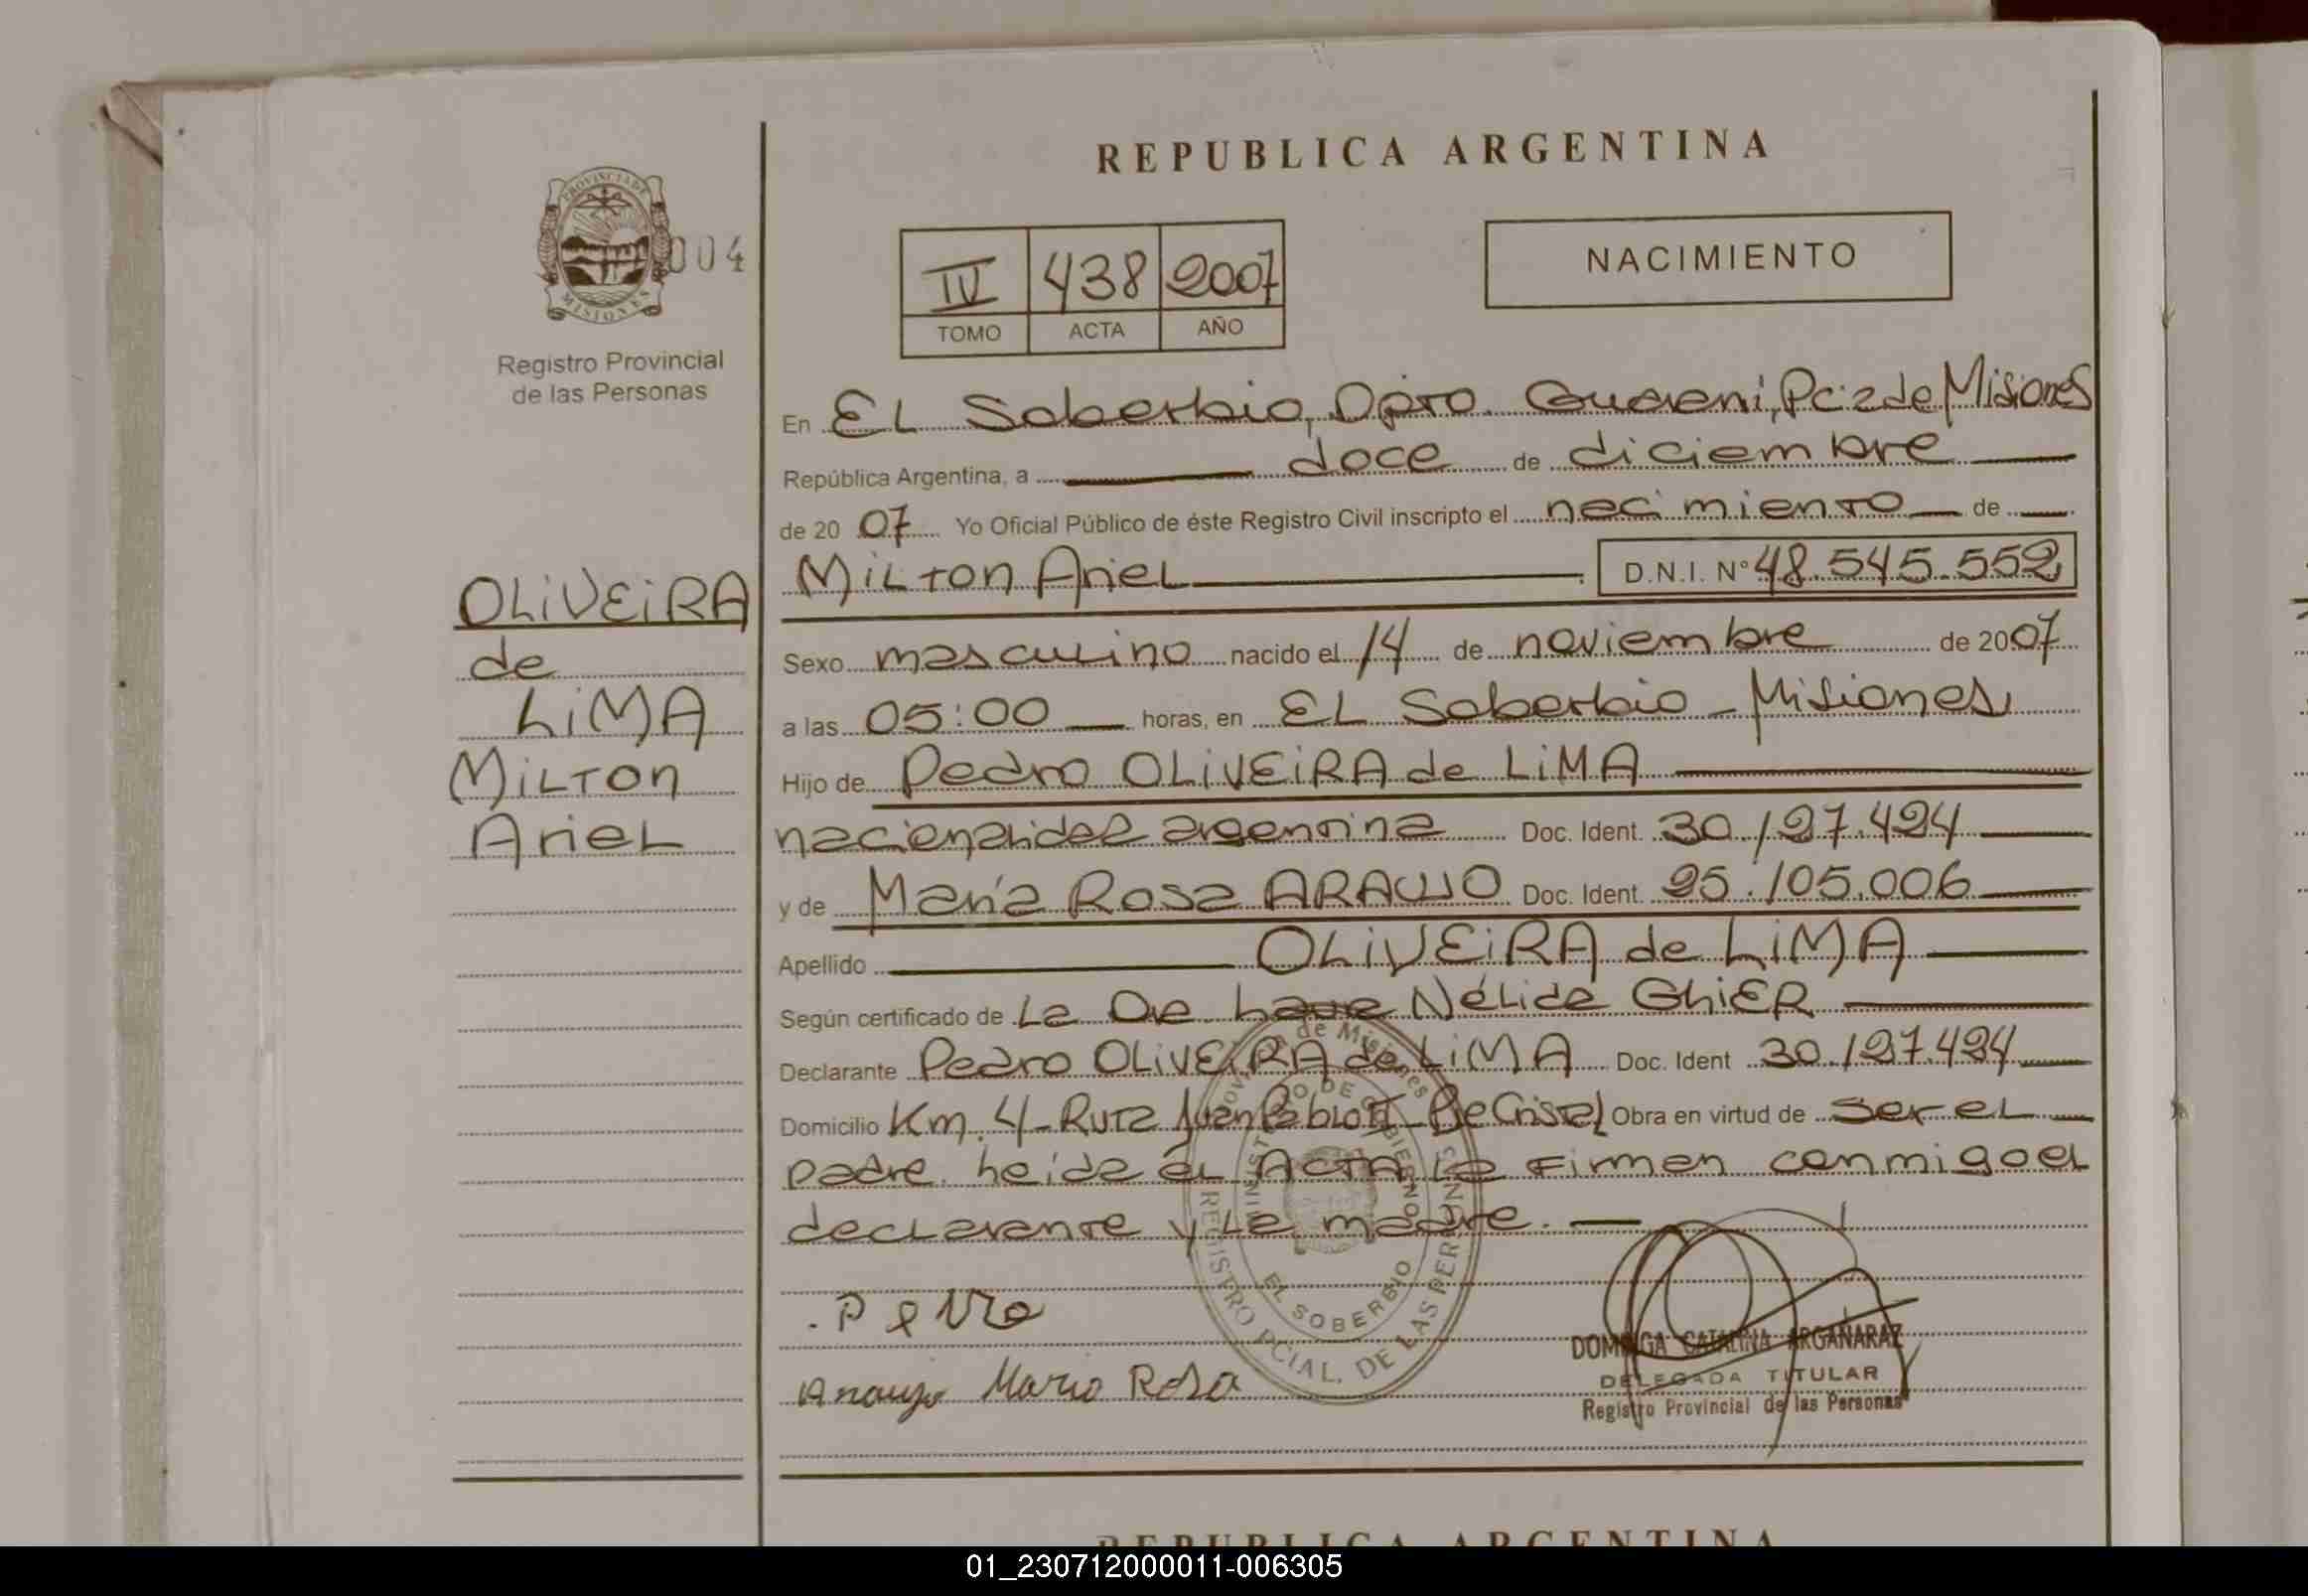 REPUBLICA ARGENTINA
PROVINCIA DE
MISIONES
004
Registro Provincial
de las Personas
IV 438 2007
TOMO ACTA AÑO
NACIMIENTO
En EL Soberbio, Dpto. Guarani, Pcia de Misiones
República Argentina, a doce de diciembre
de 20 07 Yo Oficial Público de éste Registro Civil inscripto el nacimiento de
OLIVEIRA
de
LIMA
MILTON
ARIEL
MILTON ARIEL D.N.I. Nº 48.545.552
Sexo masculino nacido el 14 de noviembre de 2007
a las 05:00 horas, en EL Soberbio - Misiones
Hijo de Pedro OLIVEIRA de LIMA
nacionalidad argentina Doc. Ident. 30.127.424
y de María Rosa ARAUJO Doc. Ident. 25.105.006
Apellido OLIVEIRA de LIMA
Según certificado de La Dra Laura Nélida GHIER
Declarante Pedro OLIVEIRA de LIMA Doc. Ident 30.127.424
Domicilio Km. 4 - Ruta Juan Pablo II - Pje Cristal Obra en virtud de ser el
padre. Leída el ACTA la Firman conmigo el
declarante y la madre.
Pedro
Araujo Maria Rosa
Provincia de Misiones
MINISTERIO DE GOBIERNO
EL SOBERBIO
REGISTRO PCIAL. DE LAS PERSONAS
DOMINGA CATALINA ARGAÑARAZ
DELEGADA TITULAR
Registro Provincial de las Personas
REPUBLICA ARGENTINA
01_230712000011-006305